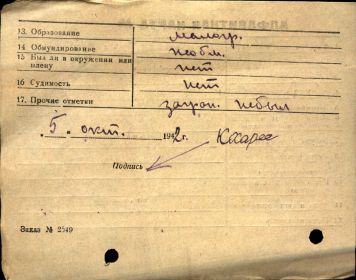 13. Образование малогр.
14 Обмундирование необм.
15 Был ли в окружении или плену нет
16 Судимость нет
17. Прочие отметки загран. не был
„5" окт. 1942 г.
Подпись
Заказ № 2549